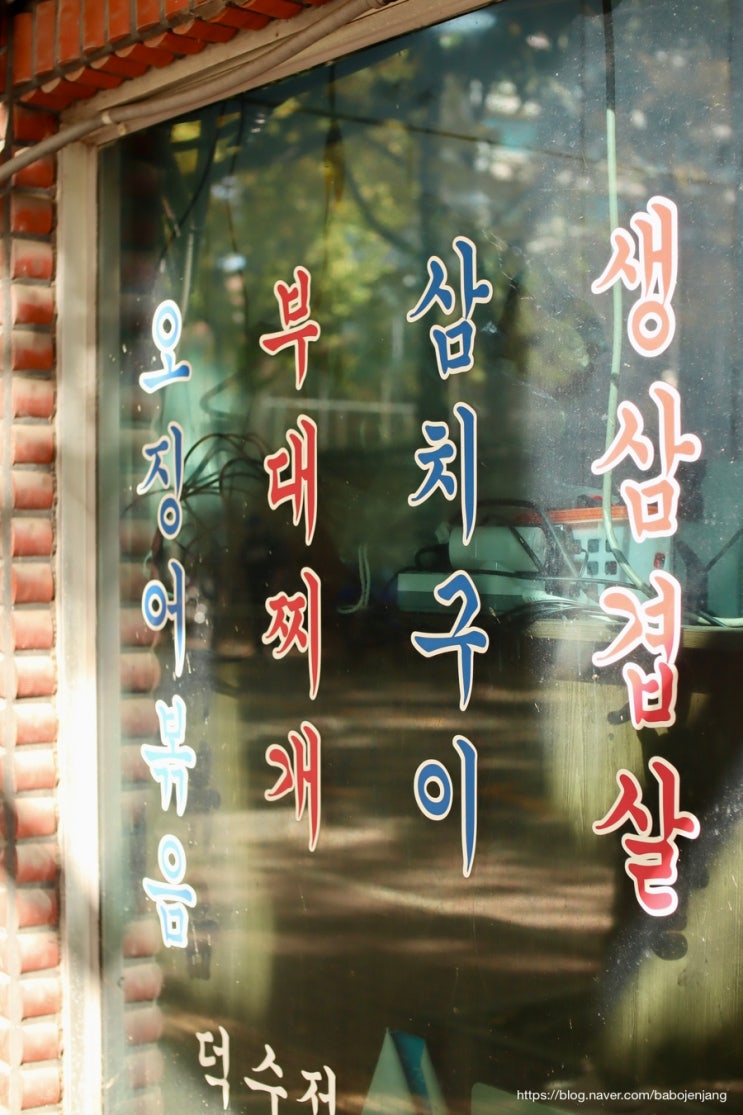 오징어볶음
부대찌개
삼치구이
생삼겹살
덕수저
https://blog.naver.com/babojenjang